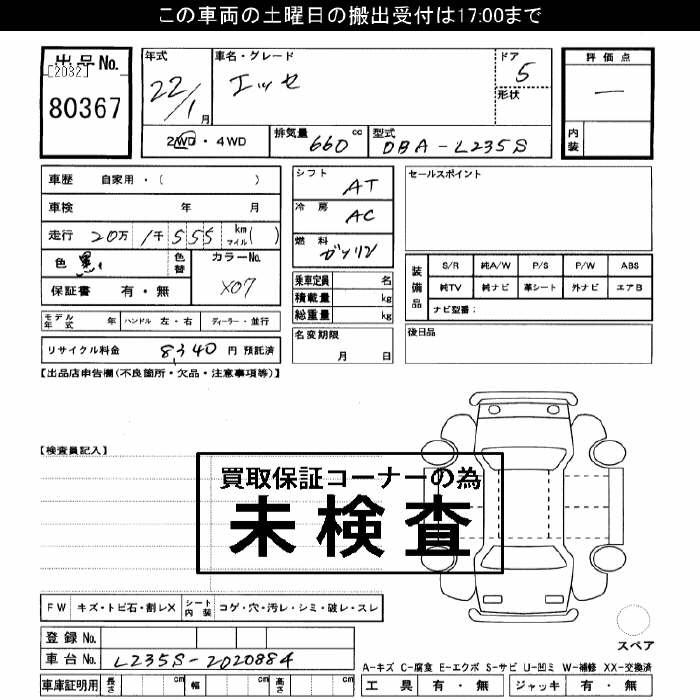 この車両の土曜日の搬出受付は17:00まで
出品No.
[2032]
80367
年式
22/1月
車名・グレード
エッセ
ドア
5
形状
2WD・4WD
排気量 660 cc
型式 DBA-L235S
評価点
―
内装
車歴 自家用・( )
車検 年 月
走行 20万 1千 5 5 5 km マイル( )
色 黒
色替
カラーNo.
X07
保証書 有・無
シフト AT
冷房 AC
燃料 ガソリン
乗車定員 名
積載量 kg
総重量 kg
セールスポイント
装備品
S/R 純A/W P/S P/W ABS
純TV 純ナビ 革シート 外ナビ エアB
ナビ型番:
モデル年式 年 ハンドル 左・右 ディーラー・並行
名変期限
月 日
後日品
リサイクル料金 8,340 円 預託済
【出品店申告欄(不良箇所・欠品・注意事項等)】
【検査員記入】
買取保証コーナーの為
未検査
FW キズ・トビ石・割レX シート内装 コゲ・穴・汚レ・シミ・破レ・スレ
登録No.
車台No. L235S-2020884
スペア
A-キズ C-腐食 E-エクボ S-サビ U-凹ミ W-補修 XX-交換済
車庫証明用 長さ cm 幅 cm 高さ cm
工具 有・無 ジャッキ 有・無